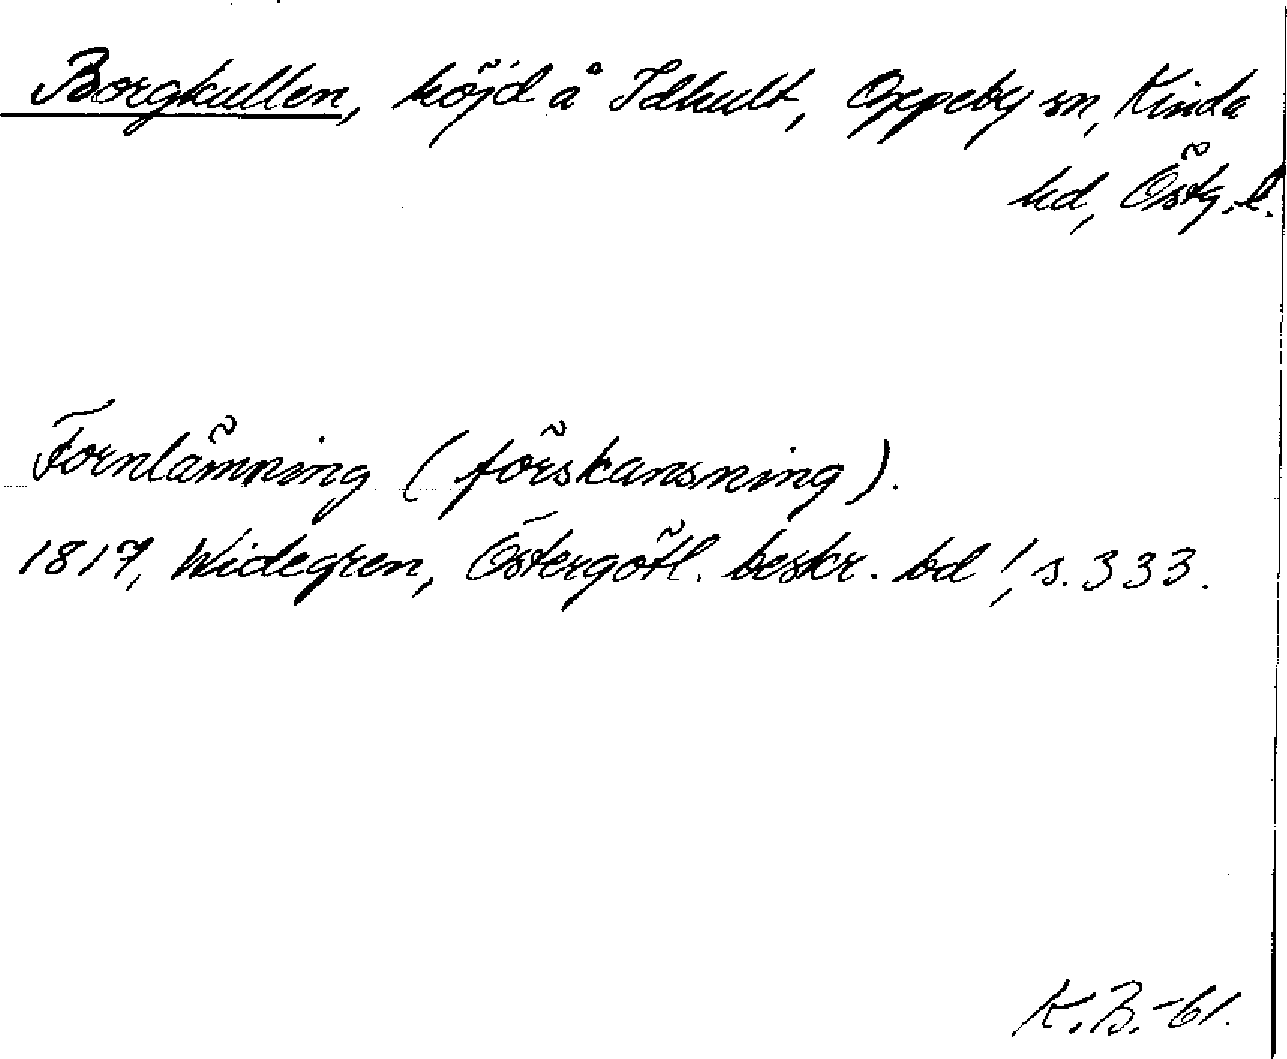 Borgkullen, höjd å Idhult, Oppeby sn, Kinda
hd, Östg. l.
Fornlämning (förskansning).
1817, Widegren, Östergötl. beskr. bd 1, s. 333.
K. B. -61.